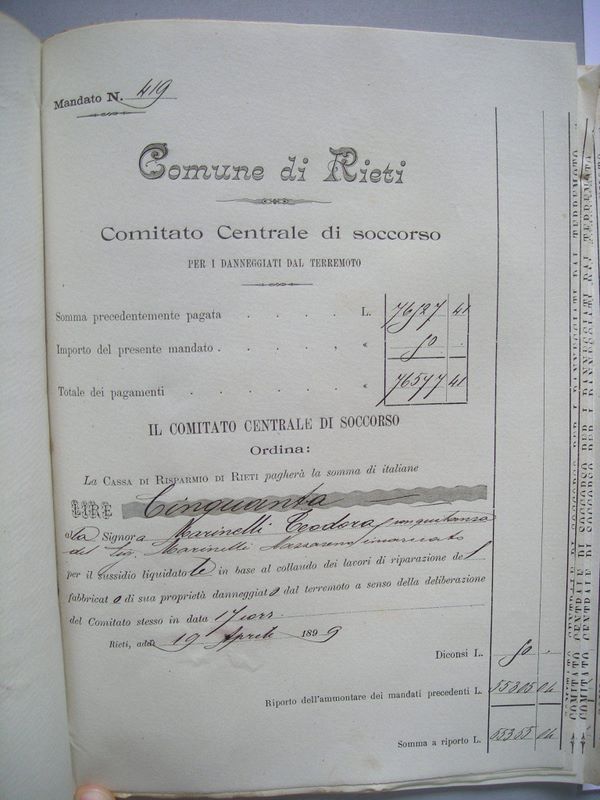 Mandato N. 419
Comune di Rieti
Comitato Centrale di soccorso
PER I DANNEGGIATI DAL TERREMOTO
Somma precedentemente pagata . . . . L. 76527 41
Importo del presente mandato . . . . . « 50 .
Totale dei pagamenti . . . . . . « 76577 41
IL COMITATO CENTRALE DI SOCCORSO
Ordina:
La CASSA DI RISPARMIO DI RIETI pagherà la somma di italiane
LIRE Cinquanta
alla Signora Marinelli Teodora con quietanza
del Sig. Marinelli
per il sussidio liquidatole in base al collaudo dei lavori di riparazione del
fabbricato di sua proprietà danneggiato dal terremoto a senso della deliberazione
del Comitato stesso in data 17 corr.
Rieti, addì 19 Aprile 1899
Diconsi L. 50 .
Riporto dell'ammontare dei mandati precedenti L. 55305 04
Somma a riporto L. 55355 04
COMITATO CENTRALE DI SOCCORSO PER I DANNEGGIATI DAL TERREMOTO